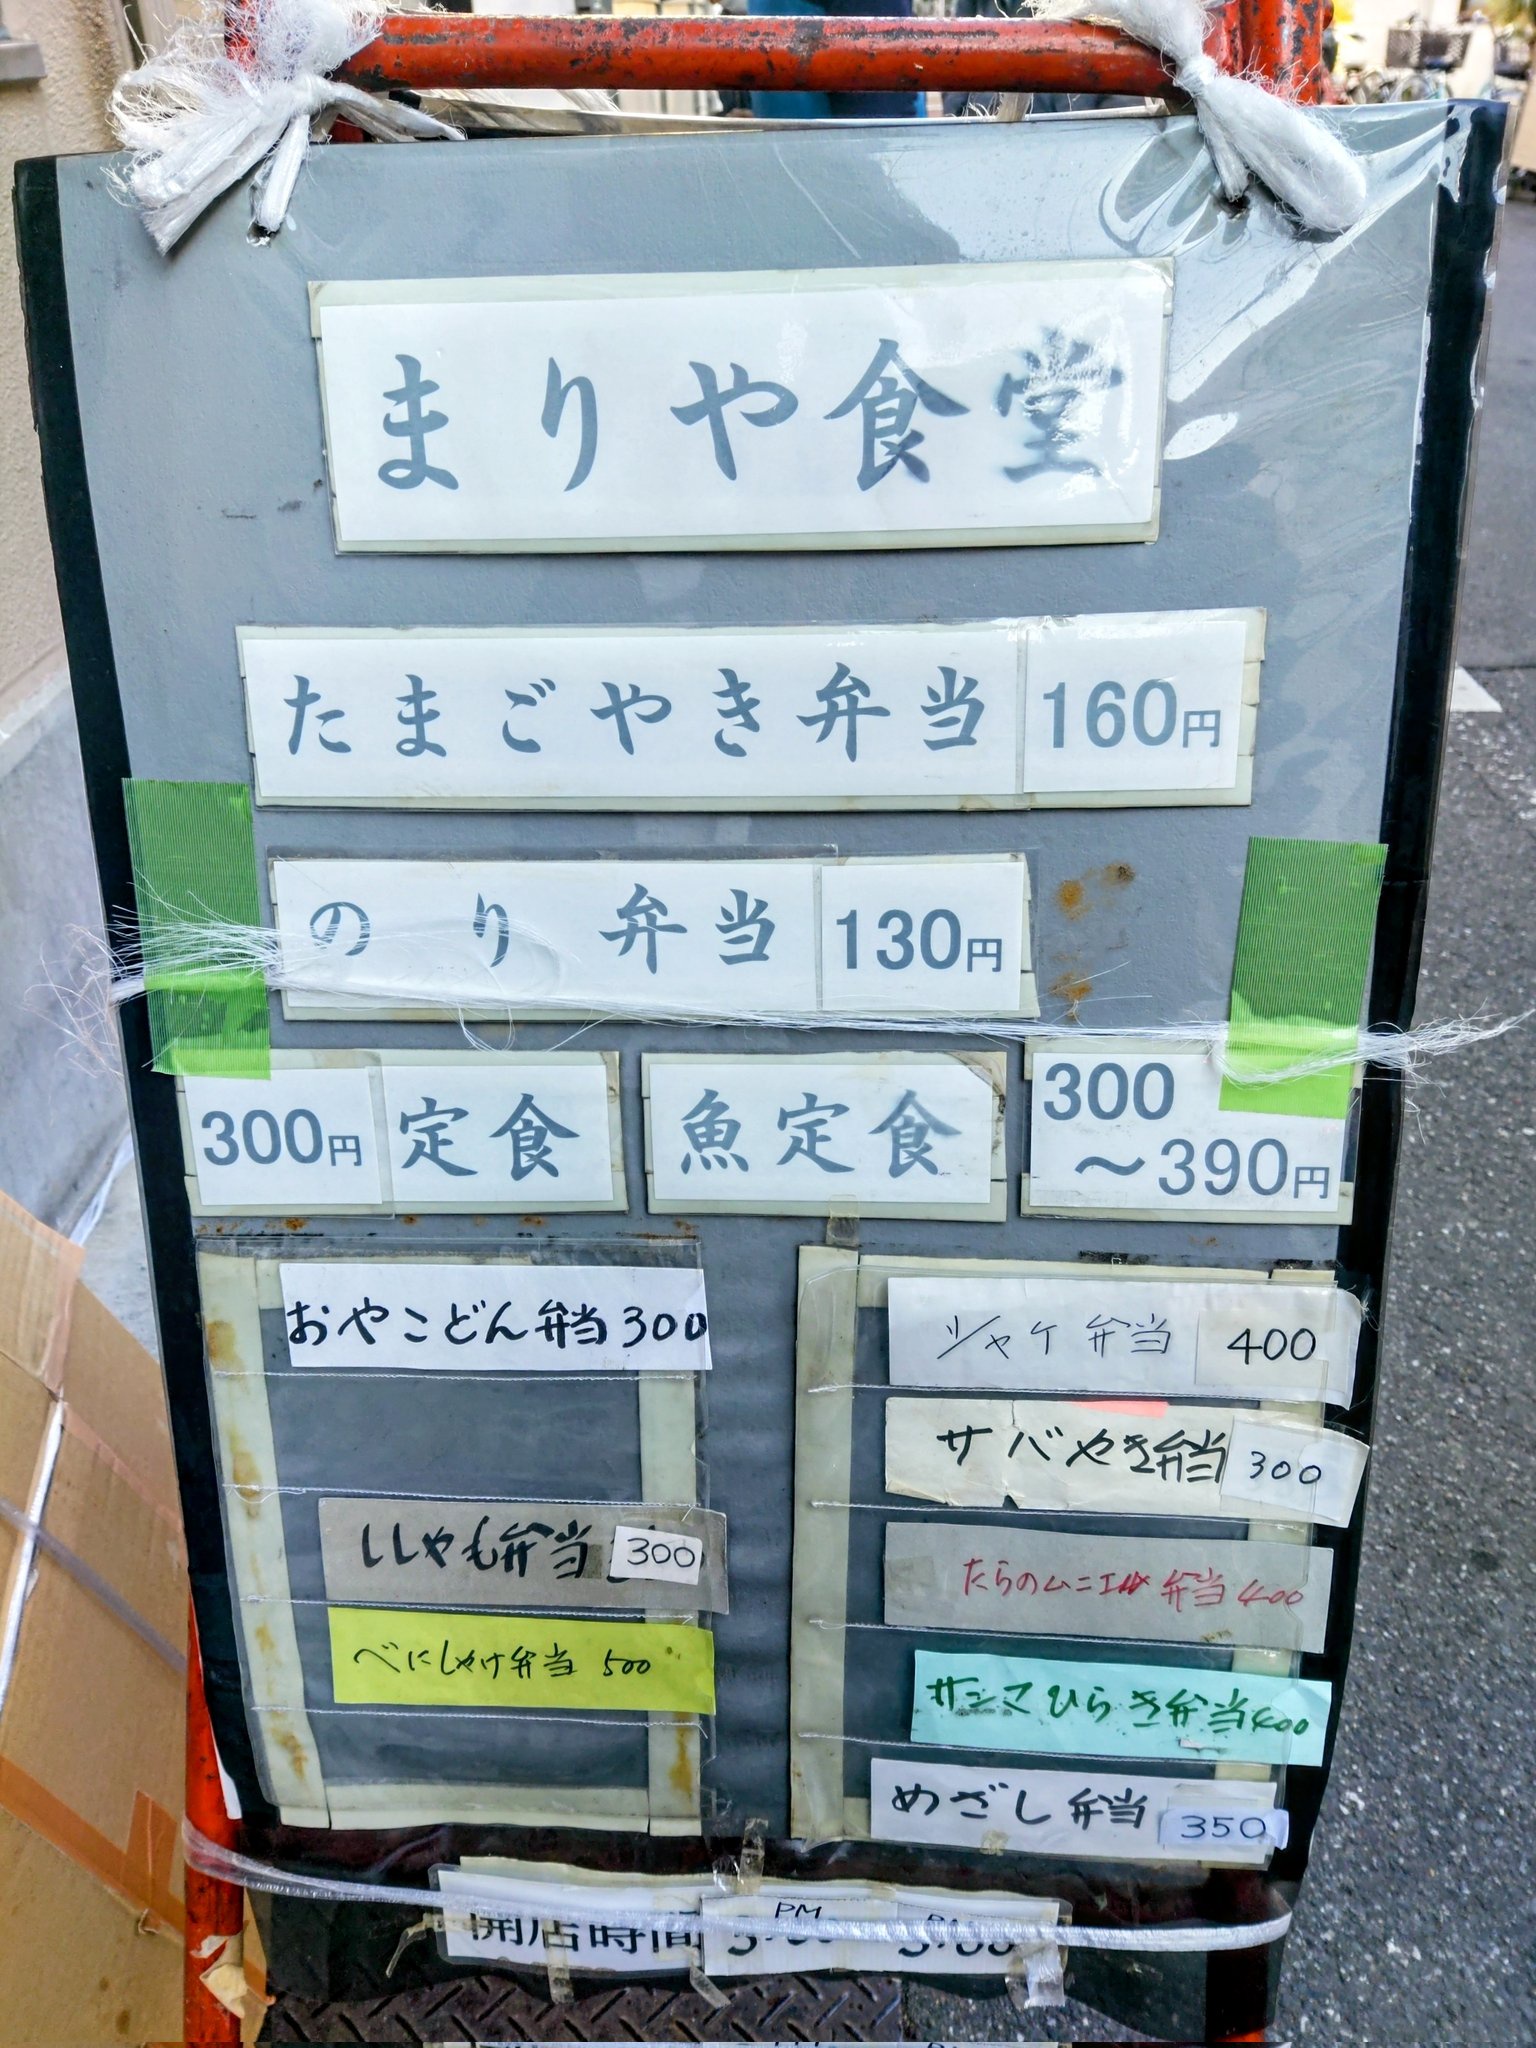 まりや食堂
たまごやき弁当 160円
のり弁当 130円
300円 定食 魚定食 300～390円
おやこどん弁当 300
ししゃも弁当 300
べにしゃけ弁当 500
シャケ弁当 400
サバやき弁当 300
たらのムニエル弁当 400
サンマひらき弁当 400
めざし弁当 350
開店時間 PM